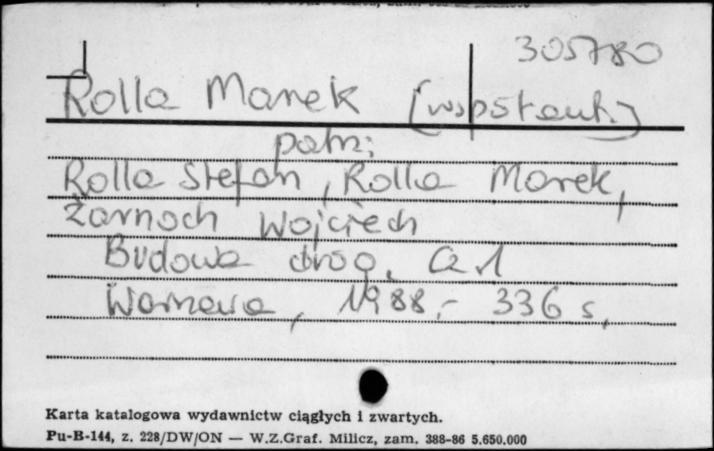 305780
Rolla Marek [współaut.]
patrz:
Rolla Stefan, Rolla Marek,
Żarnoch Wojciech
Budowa dróg. Cz. 1
Warszawa, 1988.- 336 s.
Karta katalogowa wydawnictw ciągłych i zwartych.
Pu-B-144, z. 228/DW/ON — W.Z.Graf. Milicz, zam. 388-86 5.650.000